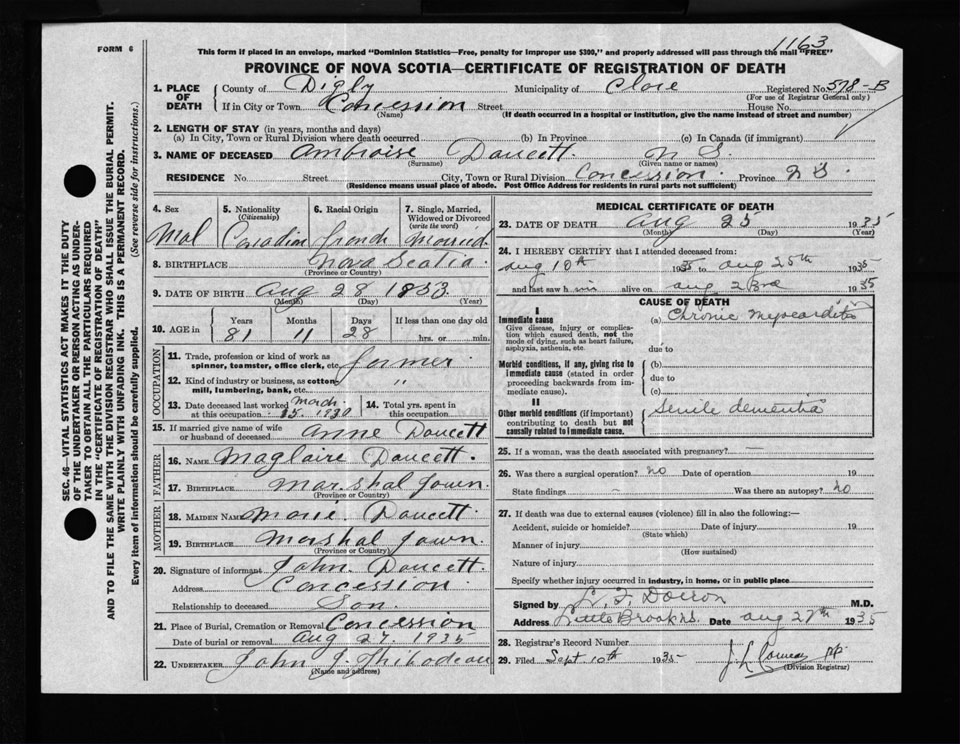 1163
FORM 6
This form if placed in an envelope, marked "Dominion Statistics—Free, penalty for improper use $300," and properly addressed will pass through the mail "FREE"
PROVINCE OF NOVA SCOTIA—CERTIFICATE OF REGISTRATION OF DEATH
1. PLACE OF DEATH
County of Digby Municipality of Clare Registered No. 578-B
(For use of Registrar General only)
If in City or Town Concession Street House No.
(Name) (If death occurred in a hospital or institution, give the name instead of street and number)
2. LENGTH OF STAY (in years, months and days)
(a) In City, Town or Rural Division where death occurred (b) In Province (c) In Canada (if immigrant)
3. NAME OF DECEASED Ambroise Doucett N S.
(Surname) (Given name or names)
RESIDENCE No. Street City, Town or Rural Division Concession Province
(Residence means usual place of abode. Post Office Address for residents in rural parts not sufficient)
4. Sex 5. Nationality (Citizenship) 6. Racial Origin 7. Single, Married, Widowed or Divorced (write the word)
Mal Canadian french Married
8. BIRTHPLACE Nova Scotia
(Province or Country)
9. DATE OF BIRTH Aug 28 1853
(Month) (Day) (Year)
10. AGE in Years Months Days If less than one day old
81 11 28 hrs. or min.
OCCUPATION
11. Trade, profession or kind of work as spinner, teamster, office clerk, etc. farmer
12. Kind of industry or business, as cotton mill, lumbering, bank, etc. "
13. Date deceased last worked at this occupation March 15. 1930 14. Total yrs. spent in this occupation
15. If married give name of wife or husband of deceased Anne Doucett
FATHER
16. NAME Maglaire Doucett.
17. BIRTHPLACE Marshal Town.
(Province or Country)
MOTHER
18. MAIDEN NAME Marie Doucett.
19. BIRTHPLACE Marshal Town.
(Province or Country)
20. Signature of informant John Doucett.
Address Concession.
Relationship to deceased Son.
21. Place of Burial, Cremation or Removal Concession
Date of burial or removal Aug 27. 1935
22. UNDERTAKER John J Thibodeau
(Name and address)
MEDICAL CERTIFICATE OF DEATH
23. DATE OF DEATH Aug 25 1935
(Month) (Day) (Year)
24. I HEREBY CERTIFY that I attended deceased from:
Aug 10th 1935 to Aug 25th 1935
and last saw him alive on Aug 1935
CAUSE OF DEATH
I
Immediate cause
Give disease, injury or complication which caused death, not the mode of dying, such as heart failure, asphyxia, asthenia, etc.
(a) Chronic myocarditis
due to
Morbid conditions, if any, giving rise to immediate cause (stated in order proceeding backwards from immediate cause).
(b)
due to
(c)
II
Other morbid conditions (if important) contributing to death but not causally related to immediate cause.
Senile dementia
25. If a woman, was the death associated with pregnancy?
26. Was there a surgical operation? no Date of operation 19
State findings Was there an autopsy? No
27. If death was due to external causes (violence) fill in also the following:—
Accident, suicide or homicide? Date of injury 19
(State which)
Manner of injury
(How sustained)
Nature of injury
Specify whether injury occurred in industry, in home, or in public place
Signed by Doiron M.D.
Address Little Brook N.S. Date Aug 27th 1935
28. Registrar's Record Number
29. Filed Sept 10th 1935 J L Comeau
(Division Registrar)
SEC. 46—VITAL STATISTICS ACT MAKES IT THE DUTY
OF THE UNDERTAKER OR PERSON ACTING AS UNDER-
TAKER TO OBTAIN ALL THE PARTICULARS REQUIRED
IN THE "CERTIFICATE OF REGISTRATION OF DEATH"
AND TO FILE THE SAME WITH THE DIVISION REGISTRAR WHO SHALL ISSUE THE BURIAL PERMIT.
WRITE PLAINLY WITH UNFADING INK. THIS IS A PERMANENT RECORD.
Every item of information should be carefully supplied. (See reverse side for instructions.)